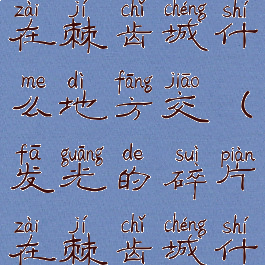 zài jí chǐ chéng shí
在棘齿城什
me dì fāng jiāo
么地方交（
fā guāng de suì piàn
发光的碎片
zài jí chǐ chéng shí
在棘齿城什